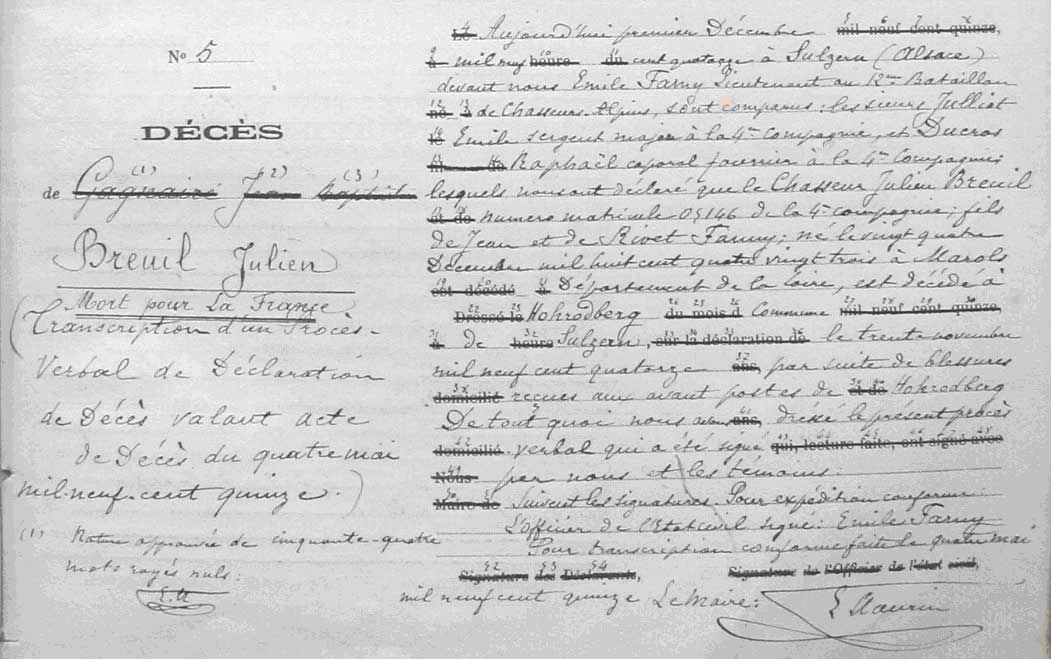 N° 5
DÉCÈS
(1) (2) (3)
de Gagnaire Jean Baptiste
Breuil Julien
Mort pour La France
(Transcription d'un Procès-
Verbal de Déclaration
de Décès valant acte
de Décès du quatre mai
mil-neuf-cent quinze.)
(1) Rature approuvée de cinquante-quatre
mots rayés nuls:
E.M
Le Aujourd'hui premier Décembre mil neuf cent quinze,
à mil neuf heure du cent quatorze à Sulzern (Alsace)
devant nous Emile Farny Lieutenant au 12me Bataillon
né à de Chasseurs Alpins, sont comparus: les sieurs Julliot
le Emile sergent major à la 4me Compagnie, et Ducros
de Raphaël caporal fourrier à la 4me Compagnie;
lesquels nous ont déclaré que le Chasseur Julien Breuil
et de numéro matricule 05146 de la 4e compagnie; fils
de Jean et de Rivet Fanny; né le vingt quatre
Décembre mil huit cent quatre vingt trois à Marols
est décédé à Département de la Loire, est décédé à
Dressé le Hohrodberg du mois d Commune mil neuf cent quinze,
à De heure Sulzern, sur la déclaration de le trente novembre
mil neuf cent quatorze ans, par suite de blessures
domicilié recues aux avant postes de et de Hohrodberg
De tout quoi nous avons ans, dressé le présent procès
domicilié verbal qui a été signé qui, lecture faite, ont signé avec
Nous par nous et les témoins:
Maire de Suivent les signatures. Pour expédition conforme:
L'Officier de l'Etat civil signé: Emile Farny
Pour transcription conforme faite le quatre mai
Signature des Déclarants, Signature de l'Officier de l'état civil,
mil neuf cent quinze Le Maire: